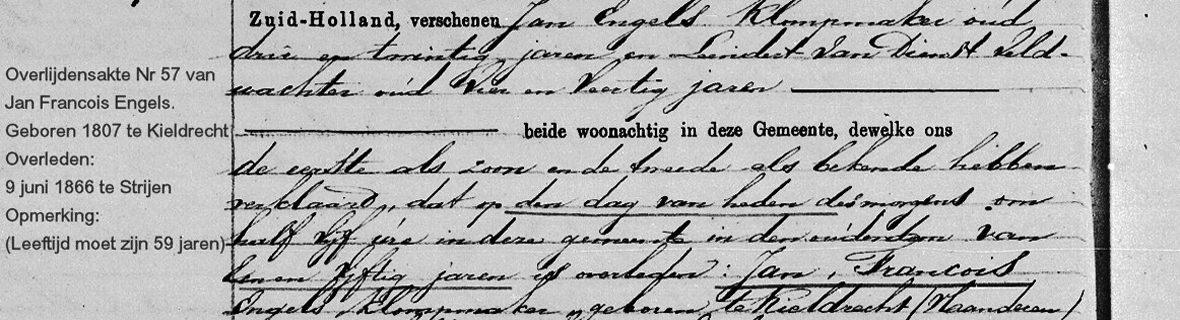 Zuid-Holland, verschenen Jan Engels Klompmaker oud
drie en twintig jaren en Leendert van Dienst veld-
wachter oud vier en veertig jaren
beide woonachtig in deze Gemeente, dewelke ons
de eerste als zoon en de tweede als bekende hebben
verklaard, dat op den dag van heden des morgens om
half vijf ure in deze gemeente in den ouderdom van
een en Vyftig jaren is overleden: Jan, Francois
Engels, Klompmaker, geboren te Kieldrecht (Vlaanderen)
Overlijdensakte Nr 57 van
Jan Francois Engels.
Geboren 1807 te Kieldrecht
Overleden:
9 juni 1866 te Strijen
Opmerking:
(Leeftijd moet zijn 59 jaren)